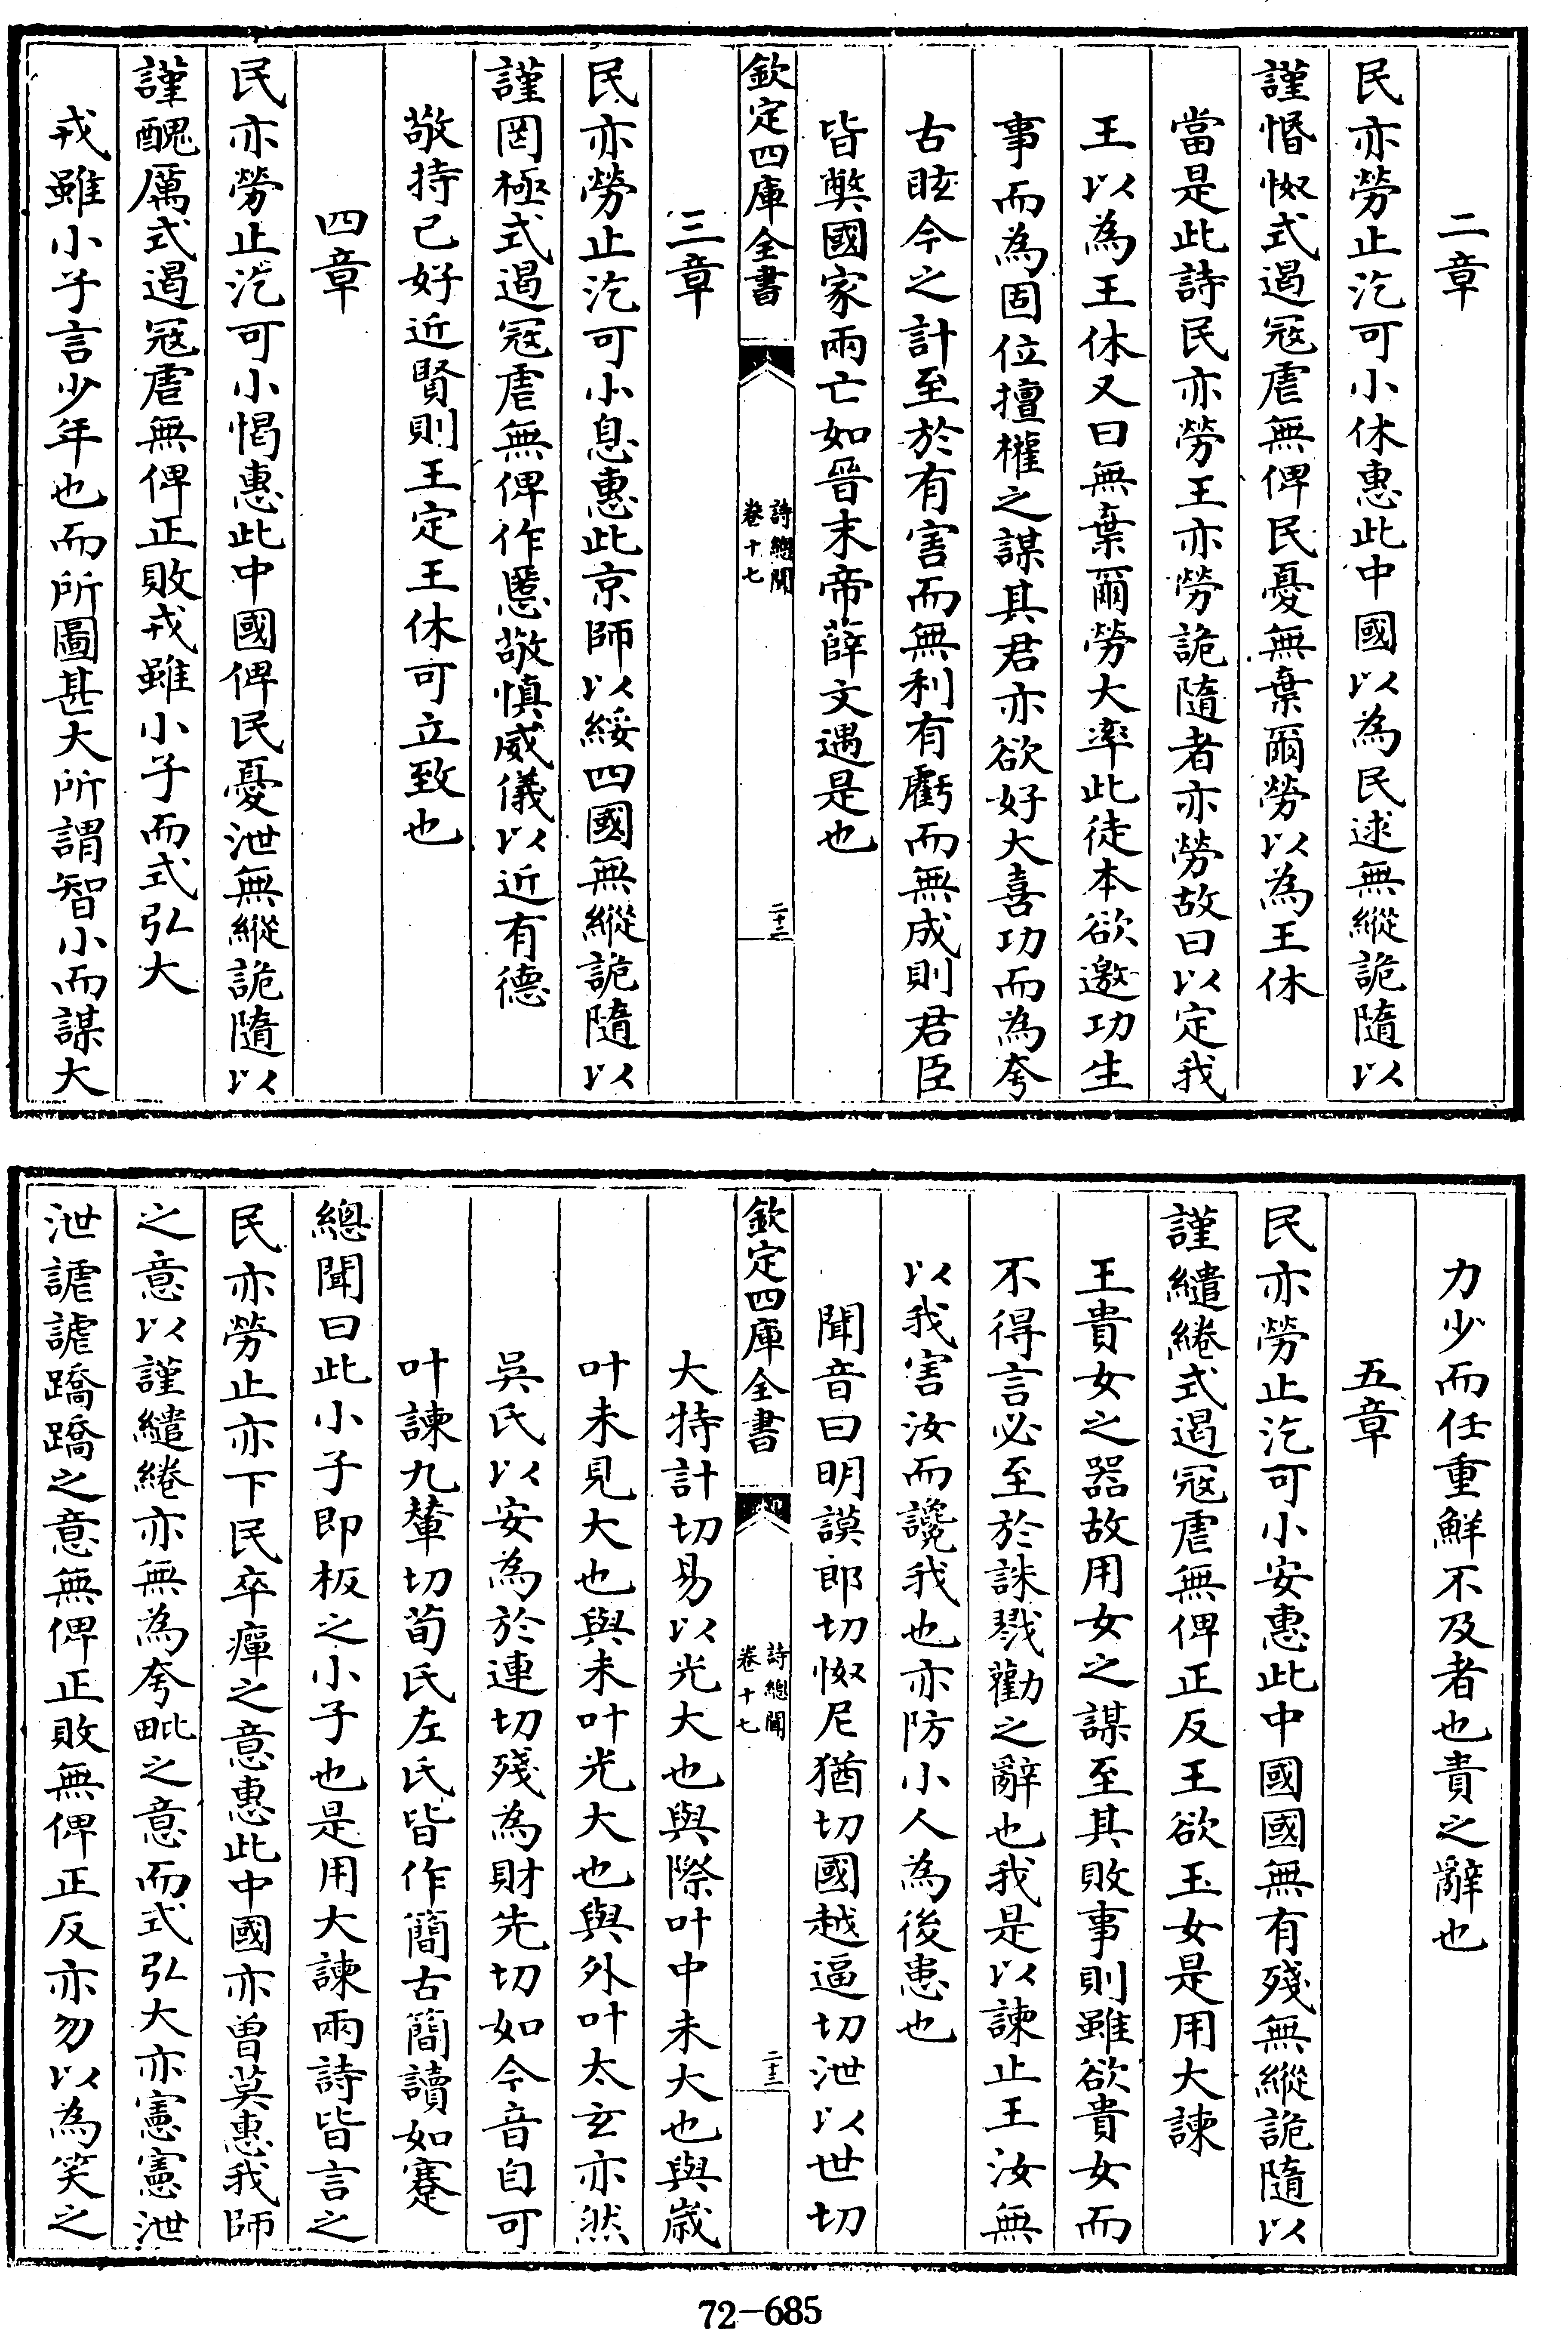 二章
民亦勞止汔可小休惠此中國以為民逑無縱詭隨以
謹惛怓式遏寇虐無俾民憂無棄爾勞以為王休
當是此詩民亦勞王亦勞詭隨者亦勞故曰以定我
王以為王休又曰無棄爾勞大率此徒本欲邀功生
事而為固位擅權之謀其君亦欲好大喜功而為夸
古眩今之計至於有害而無利有虧而無成則君臣
皆弊國家兩亡如晉末帝薛文遇是也
欽定四庫全書
詩總聞
卷十七
二十二
三章
民亦勞止汔可小息惠此京師以綏四國無縱詭隨以
謹罔極式遏寇虐無俾作慝敬慎威儀以近有德
敬持己好近賢則王定王休可立致也
四章
民亦勞止汔可小愒惠此中國俾民憂泄無縱詭隨以
謹醜厲式遏寇虐無俾正敗戎雖小子而式弘大
戎雖小子言少年也而所圖甚大所謂智小而謀大
力少而任重鮮不及者也責之辭也
五章
民亦勞止汔可小安惠此中國國無有殘無縱詭隨以
謹繾綣式遏寇虐無俾正反王欲玉女是用大諫
王貴女之器故用女之謀至其敗事則雖欲貴女而
不得言必至於誅戮勸之辭也我是以諫止王汝無
以我害汝而讒我也亦防小人為後患也
聞音曰明謨郎切怓尼猶切國越逼切泄以世切
欽定四庫全書
詩總聞
卷十七
二十三
大特計切易以光大也與際叶中未大也與歲
叶未見大也與未叶光大也與外叶太玄亦然
吳氏以安為於連切殘為財先切如今音自可
叶諫九輦切荀氏左氏皆作簡古簡讀如蹇
總聞曰此小子即板之小子也是用大諫兩詩皆言之
民亦勞止亦下民卒癉之意惠此中國亦曾莫惠我師
之意以謹繾綣亦無為夸毗之意而式弘大亦憲憲泄
泄謔謔蹻蹻之意無俾正敗無俾正反亦勿以為笑之
72-685